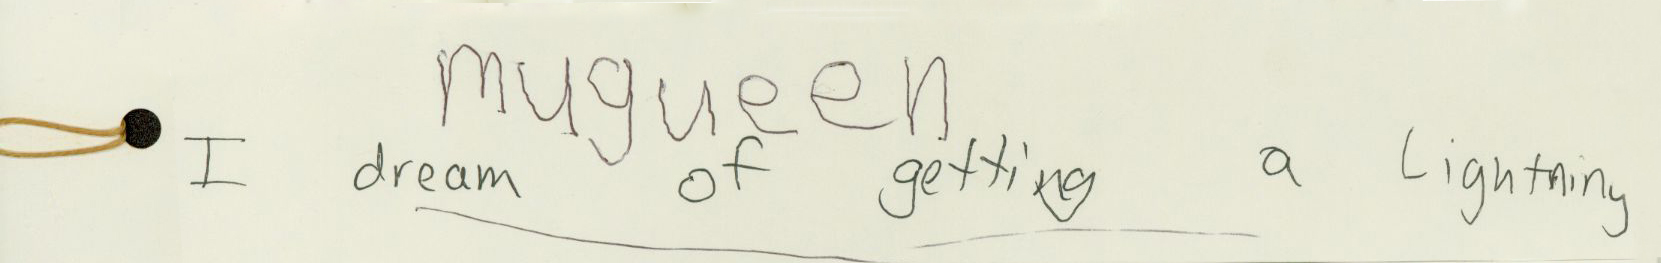 mugueen
I dream of getting a Lightning